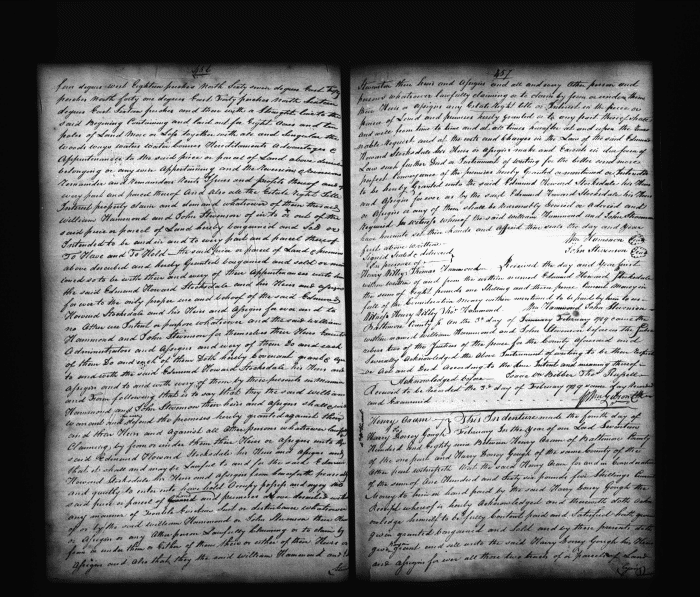 456
four degrees west Eighteen perches North Sixty seven degrees East Forty
perches North forty one degrees East Forty perches North
degrees East Sixteen perches and then with a Straight line to the
said Beginning Containing and laid out for Eight Acres and ten
poles of Land More or Less together with all and Singular the
Woods ways waters water Courses Hereditaments Advantages &
Appurtenances to the said piece or parcel of Land above
belonging or any wise Appertaining and the Reversion &
Remainder and Remainders Rents Issues and profits thereof and
every part and parcel thereof And also all the Estate Right Title
Interest property claim and demand whatsoever of them the said
William Hammond and John Stevenson of in to or out of the
said piece or parcel of Land hereby bargained and Sold or
Intended to be and in and to every part and parcel thereof
To Have and To Hold the said piece or parcel of Land & premises
above described and hereby granted bargained and sold
to be with their and every of their Appurtenances unto
the said Edmund Howard Stocksdale and his Heirs and Assigns
forever to the only proper use and behoof of the said Edmund
Howard Stocksdale and his Heirs and Assigns for ever and to
no other use Intent or purpose whatsoever and the said William
Hammond and John Stevenson for themselves their Heirs
Administrators and Assigns and every of them Do and each
of them Do and each of them Doth hereby Covenant grant &
to and with the said Edmund Howard Stocksdale his Heirs and
Assigns and to and with every of them by these presents in manner
and Form following that is to say that they the said William
Hammond and John Stevenson their heirs and assigns shall
and will the premises hereby granted against
and their Heirs and Against all other persons whatsoever
Claiming by from or under them their Heirs or Assigns unto the
said Edmund Howard Stocksdale his Heirs and Assigns and
that it shall and may be Lawful to and for the said Edmund
Howard Stocksdale his Heirs and Assigns from time to time peaceably
and quietly to enter into have hold Occupy possess and enjoy the
said piece or parcel of Land and premises above
any manner of Trouble hindrance let or disturbance whatsoever
of or by the said William Hammond or John Stevenson their Heirs
or Assigns or any other person Lawfully Claiming or to claim by
from or under them or Either of them their or either of their Heirs or
Assigns and also that they the said William Hammond and John
457
Stevenson their Heirs and Assigns and all and every other person and
persons whatsoever lawfully claiming or to claim by from or under them
their Heirs or Assigns any Estate Right title or Interest in the piece or
parcel of Land and premises hereby granted or to any part thereof shall
and will from time to time and at all times hereafter at and upon the
Request and at the costs and charges in the Law of the said Edmund
Howard Stocksdale his Heirs or Assigns make and Execute in due form of
Law such further Deed or Instrument of writing for the better and more
sure Conveyance of the premises hereby Granted or mentioned or Intended
to be hereby Granted unto the said Edmund Howard Stocksdale his Heirs
and Assigns for ever as by the said Edmund Howard Stocksdale his Heirs
or Assigns or any of them shall be reasonably Devised or Advised and
Required In witness whereof the said William Hammond and John Stevenson
have hereunto set their hands and Affixed their seals the day and year
first above written
Signed Sealed & delivered
in the presence of
Wm Hammond
John Stevenson
Henry Willsy Thomas Hammond Received the day and year first
within written of and from the within named Edmund Howard Stocksdale
the sum of Eight pounds Six Shillings and three pence Current Money in
full of the Consideration money within mentioned to be paid by him to us
Witness Henry Willsy Thos Hammond Wm Hammond John Stevenson
Baltimore County on the day of February 1789
within named William Hammond and John Stevenson before us the Sub-
scribers two of the Justices of the peace for the County aforesaid and
Severally Acknowledged the above Instrument of writing to be their
Act and Deed according to the true Intent and meaning thereof
Acknowledged before
Received to be recorded the 3d day of February 1789 same day Recorded
and Examined
Wm Gibson
Henry Oram
To
Harry Dorsey Gough
This Indenture made the fourth day of
February In the Year of our Lord Seventeen
Hundred and Eighty nine Between Henry Oram of Baltimore County
of the one part and Harry Dorsey Gough of the same County of the
other part witnesseth that the said Henry Oram for and in Consideration
of the sum of One Hundred and thirty six pounds five Shillings
Money to him in hand paid by the said Harry Dorsey Gough the
Receipt whereof is hereby Acknowledged and therewith doth ack-
nowledge himself to be fully Contented paid and Satisfied hath
given granted bargained and sold and by these presents doth
give grant and sell unto the said Harry Dorsey Gough his Heirs
and Assigns for ever all those two tracts or parcels of Land